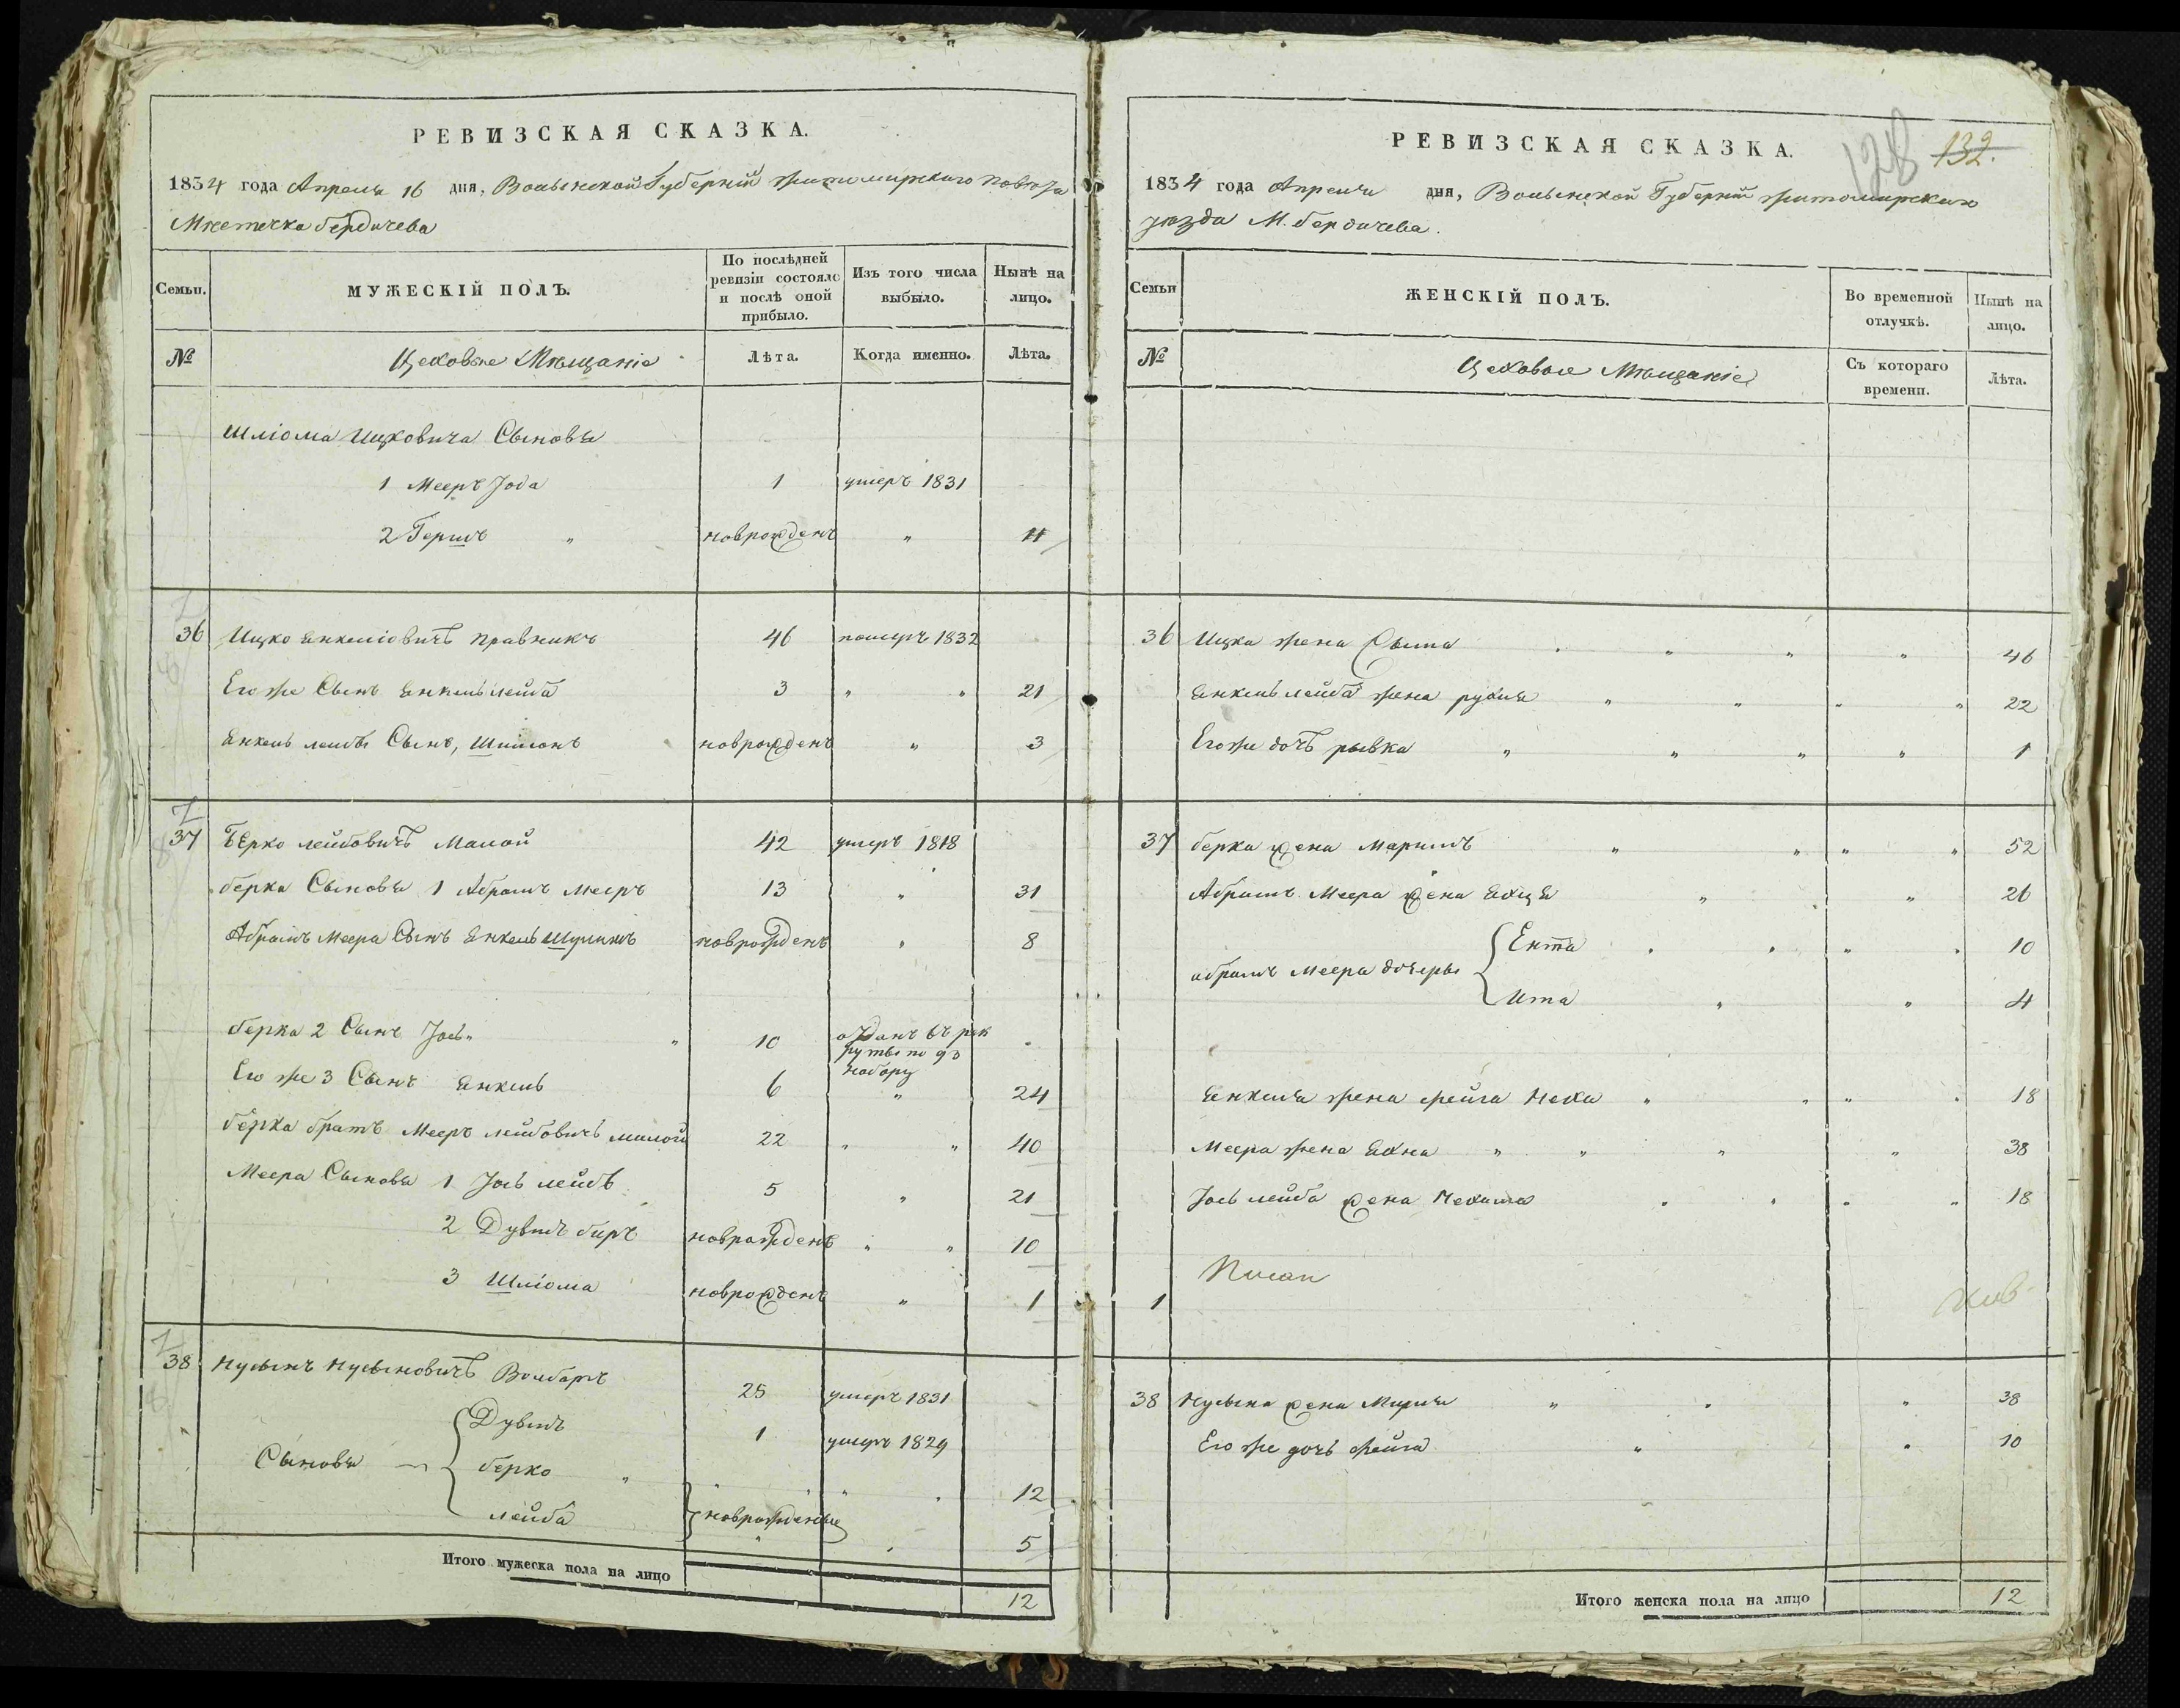 РЕВИЗСКАЯ СКАЗКА.
1834 года Апреля 16 дня, Волынской Губерніи Житомирского Повета
Местечка бердичева
Семьи.
МУЖЕСКІЙ ПОЛЪ.
По послѣдней ревизіи состояло и послѣ оной прибыло.
Изъ того числа выбыло.
Нынѣ на лицо.
№
Цеховые Мѣщаніе
Лѣта.
Когда именно.
Лѣта.
Шліома Ицковича Сыновья
1 Мееръ Іода 1 умеръ 1831
2 Гершъ " новрожденъ " 11
36 Ицко Янкеліовичъ Правникъ 46 померъ 1832
Его же Сынъ Янкель лейба 3 " " 21
Янкель лейбы Сынъ, Шимонъ новрожденъ " 3
37 Берко лейбовичъ Малой 42 умеръ 1818
берка Сыновья 1 Абрамъ Мееръ 13 " 31
Абрамъ Меера Сынъ Янкель Шулимъ новрожденъ " 8
берка 2 Сынъ Іось " " 10 отданъ въ рек
руты по 93
набору
Его же 3 Сынъ Янкель 6 " 24
берка братъ Мееръ лейбовичъ малой 22 " " 40
Меера Сыновья 1 Іось лейб 5 " 21
2 Дувидъ биръ новрожденъ " " 10
3 Шліома новрожденъ " 1
38 Нусынъ Нусыновичъ 25 умеръ 1831
Дувидъ 1 умеръ 1829
Сыновья берко " " " " " 12
лейба новрожденые " 5
Итого мужеска пола на лицо 12
128 132.
РЕВИЗСКАЯ СКАЗКА.
1834 года Апреля дня, Волынской Губерніи Житомирскаго
уезда М. бердичева.
Семьи
ЖЕНСКІЙ ПОЛЪ.
Во временной отлучкѣ.
Нынѣ на лицо.
№
Цеховые Мѣщаніе
Съ котораго времени.
Лѣта.
36 Ицка жена Сыма " " " " 46
Янкель лейба жена рухля " " " " 22
Его же дочь рывка " " " " 1
37 берка жена Маримъ " " " " 52
Абрамъ Меера жена Яхця " " 26
абрамъ Меера дочеры
Ента " " " " 10
Ита " " 4
Янкеля жена фейга Неха " " " " 18
Меера жена Яхна " " " " 38
Іось лейба жена Нехама " " " " 18
1
38 Нусына жена Мирля " " " 38
Его же дочь фейга " " 10
Итого женска пола на лицо 12